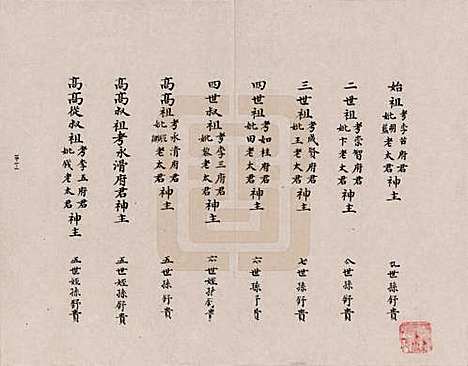 始祖考李台府君妣胡藍老太君神主 九世孫舒貴
二世祖考崇智府君妣卞老太君神主 八世孫舒貴
三世祖考成賢府君妣王老太君神主 七世孫舒貴
四世祖考如桂府君妣田老太君神主 六世孫舒貴
四世叔祖考季三府君妣 老太君神主 六世姪孫舒貴
高高祖考永清府君妣 老太君神主 五世孫舒貴
高高叔祖考永滑府君神主 五世姪孫舒貴
高高從叔祖考季五府君妣錢老太君神主 五世姪孫舒貴